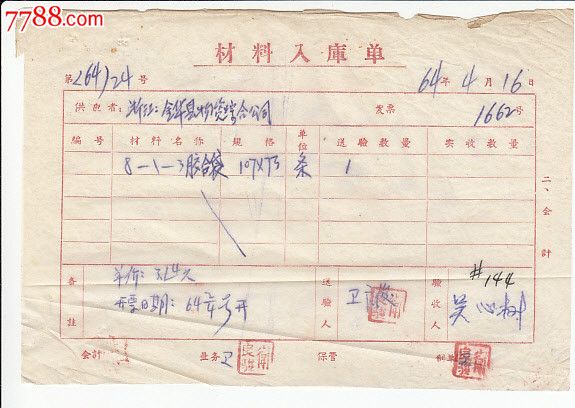 7788.com
材料入庫单
第(64)24号 64年4月16日
供应者：浙江金华县物资综合公司 发票 1662号
編号 材料名称 規格 单位 送驗数量 实收数量
8-1-3胶合袋 107×73 条 1
二、会計
备註 单价：
开票日期：64年
送驗人 卫
驗收人 #144
吴心树
会計 业务 卫 保管